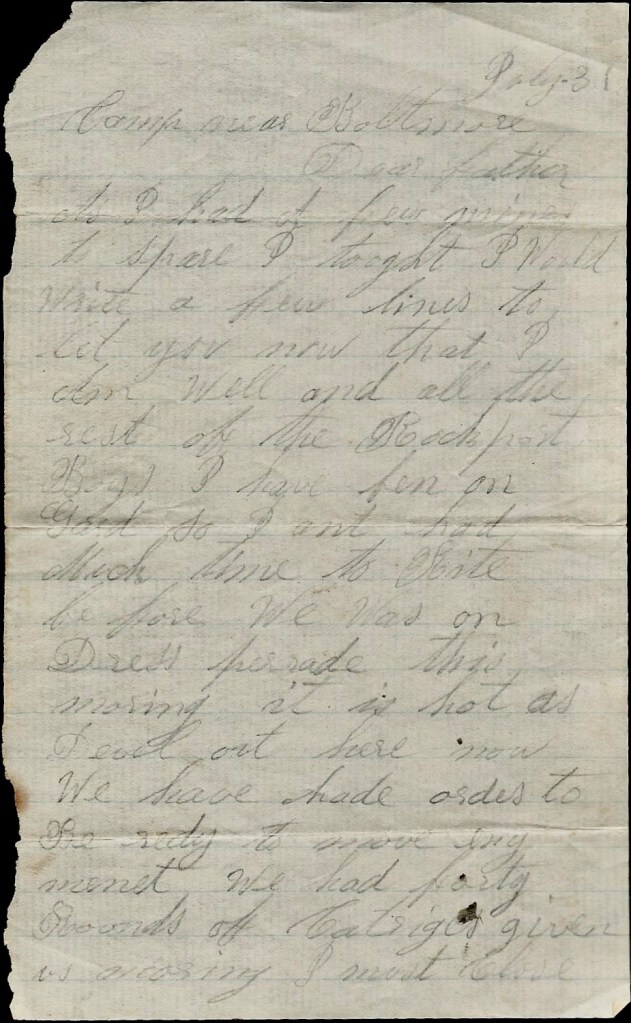 July 31
Camp near Boltmore
Dear father
As I had A few mines
to spare I tooght I World
Write a few lines to
let you now that I
Am Well and all the
rest of the Rockport
Boys I have ben on
Gard so I ant had
Much time to Rite
be fore We Was on
Dress perrade this
moring it is hot as
Devel out here now
We have hade ordes to
Be redy to move eny
menet We had forty
Rownds of Catriges given
us moring I must Close